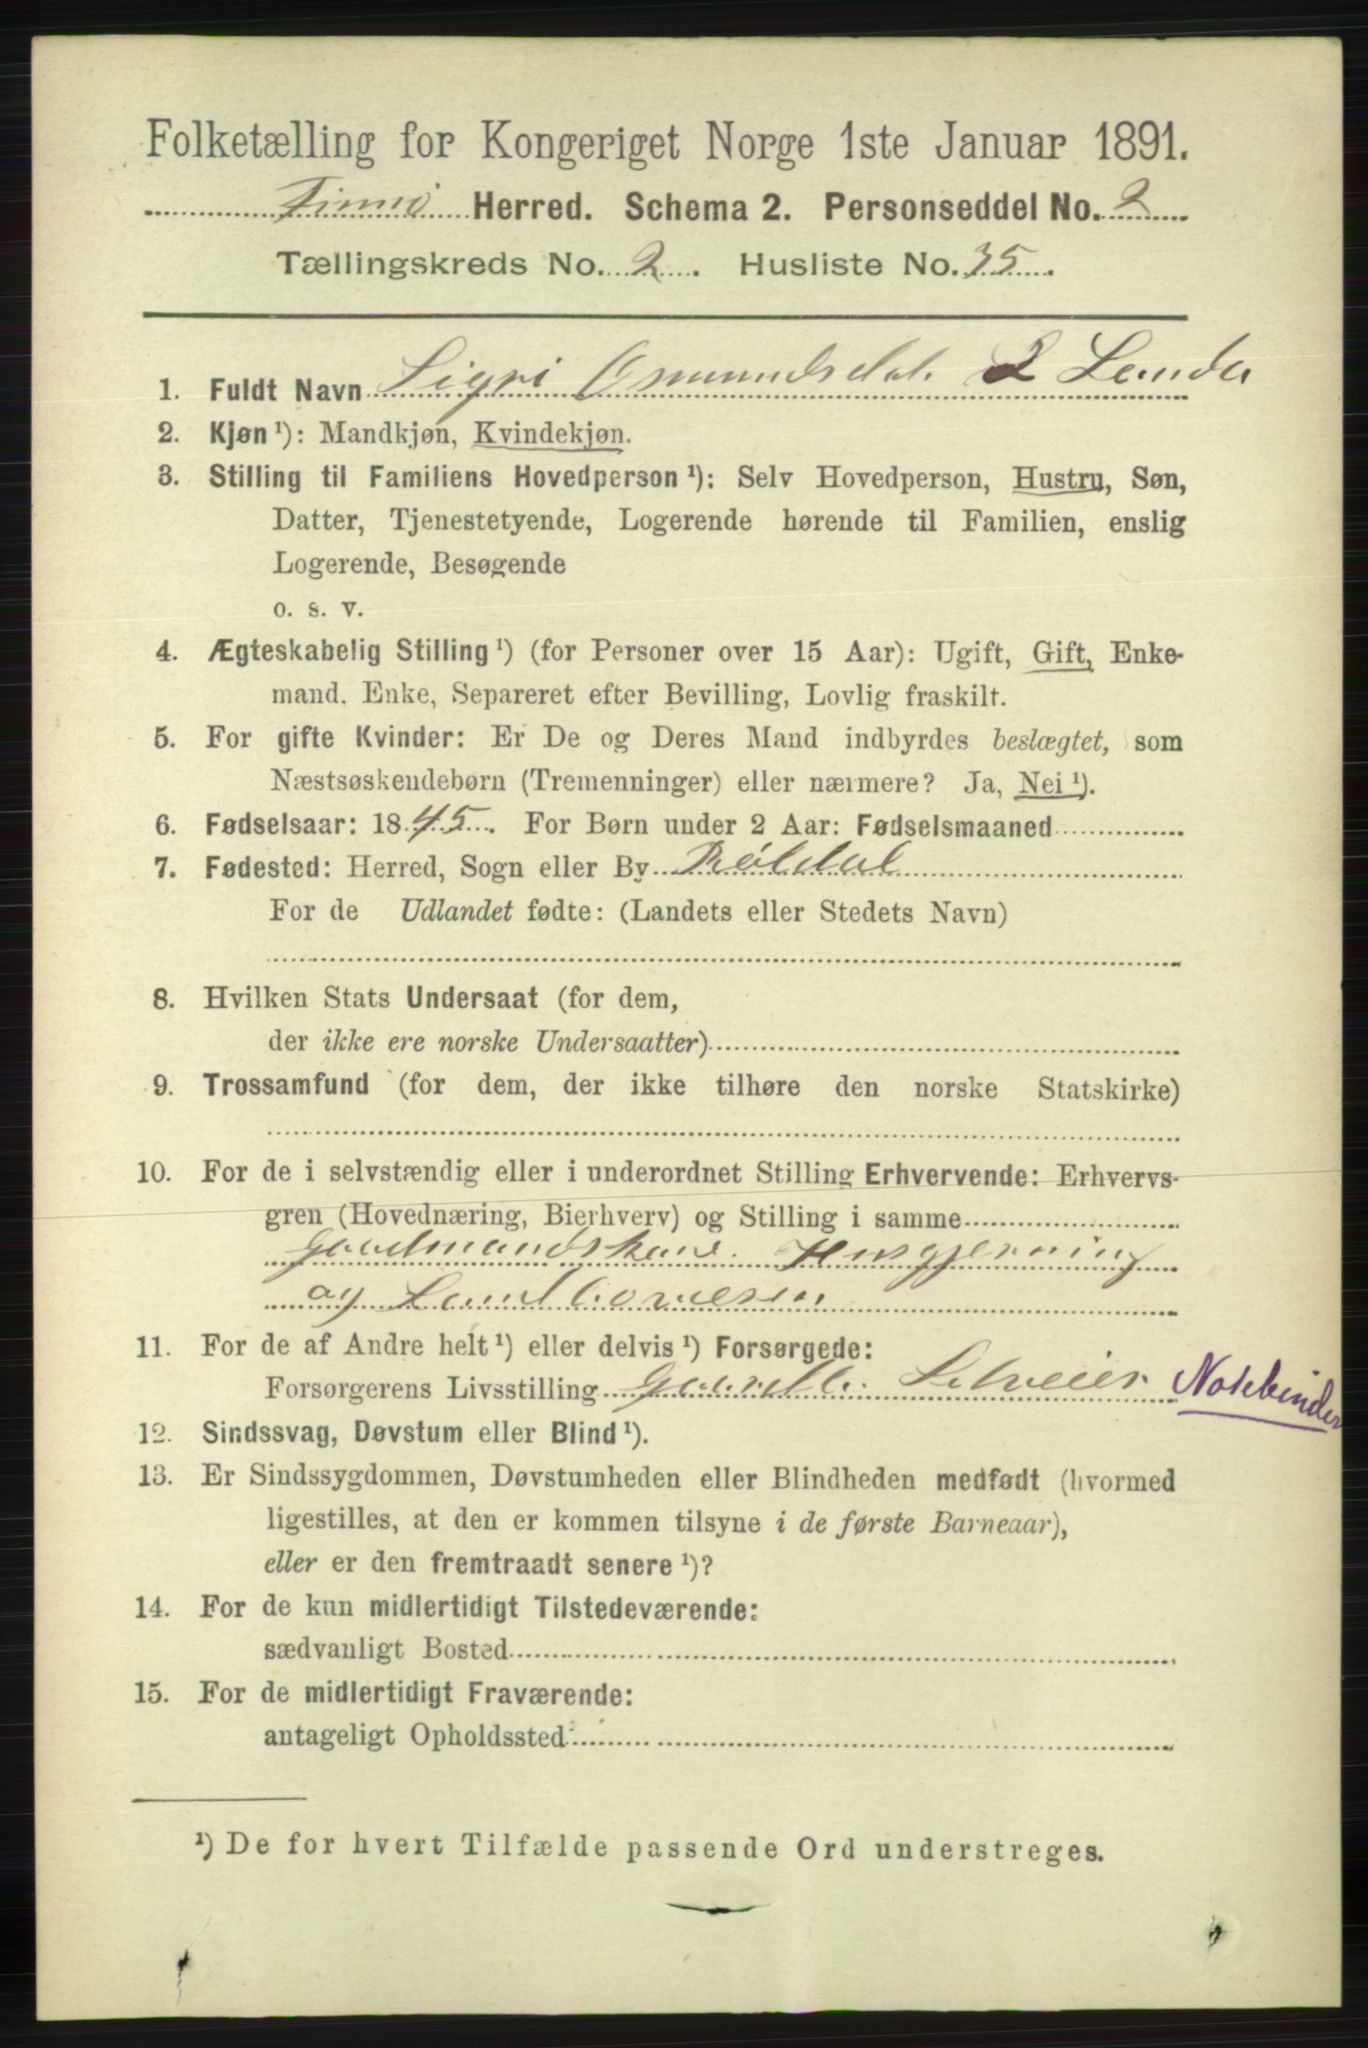 Folketælling for Kongeriget Norge 1ste Januar 1891.
Finnø Herred. Schema 2. Personseddel No. 2
Tællingskreds No. 2. Husliste No. 35.
1. Fuldt Navn Sigri Osmundsdat.
2. Kjøn ¹): Mandkjøn, Kvindekjøn.
3. Stilling til Familiens Hovedperson ¹): Selv Hovedperson, Hustru, Søn,
Datter, Tjenestetyende, Logerende hørende til Familien, enslig
Logerende, Besøgende
o. s. v.
4. Ægteskabelig Stilling ¹) (for Personer over 15 Aar): Ugift, Gift, Enke-
mand. Enke, Separeret efter Bevilling, Lovlig fraskilt.
5. For gifte Kvinder: Er De og Deres Mand indbyrdes beslægtet, som
Næstsøskendebørn (Tremenninger) eller nærmere? Ja, Nei ¹).
6. Fødselsaar: 1845. For Børn under 2 Aar: Fødselsmaaned
7. Fødested: Herred, Sogn eller By Røldal
For de Udlandet fødte: (Landets eller Stedets Navn)
8. Hvilken Stats Undersaat (for dem,
der ikke ere norske Undersaatter)
9. Trossamfund (for dem, der ikke tilhøre den norske Statskirke)
10. For de i selvstændig eller i underordnet Stilling Erhvervende: Erhvervs-
gren (Hovednæring, Bierhverv) og Stilling i samme
Gaardmandskone. Husgjerning
og
11. For de af Andre helt ¹) eller delvis ¹) Forsørgede:
Forsørgerens Livsstilling Gaardbr. Selveier Notebinder
12. Sindssvag, Døvstum eller Blind ¹).
13. Er Sindssygdommen, Døvstumheden eller Blindheden medfødt (hvormed
ligestilles, at den er kommen tilsyne i de første Barneaar),
eller er den fremtraadt senere ¹)?
14. For de kun midlertidigt Tilstedeværende:
sædvanligt Bosted
15. For de midlertidigt Fraværende:
antageligt Opholdssted
¹) De for hvert Tilfælde passende Ord understreges.